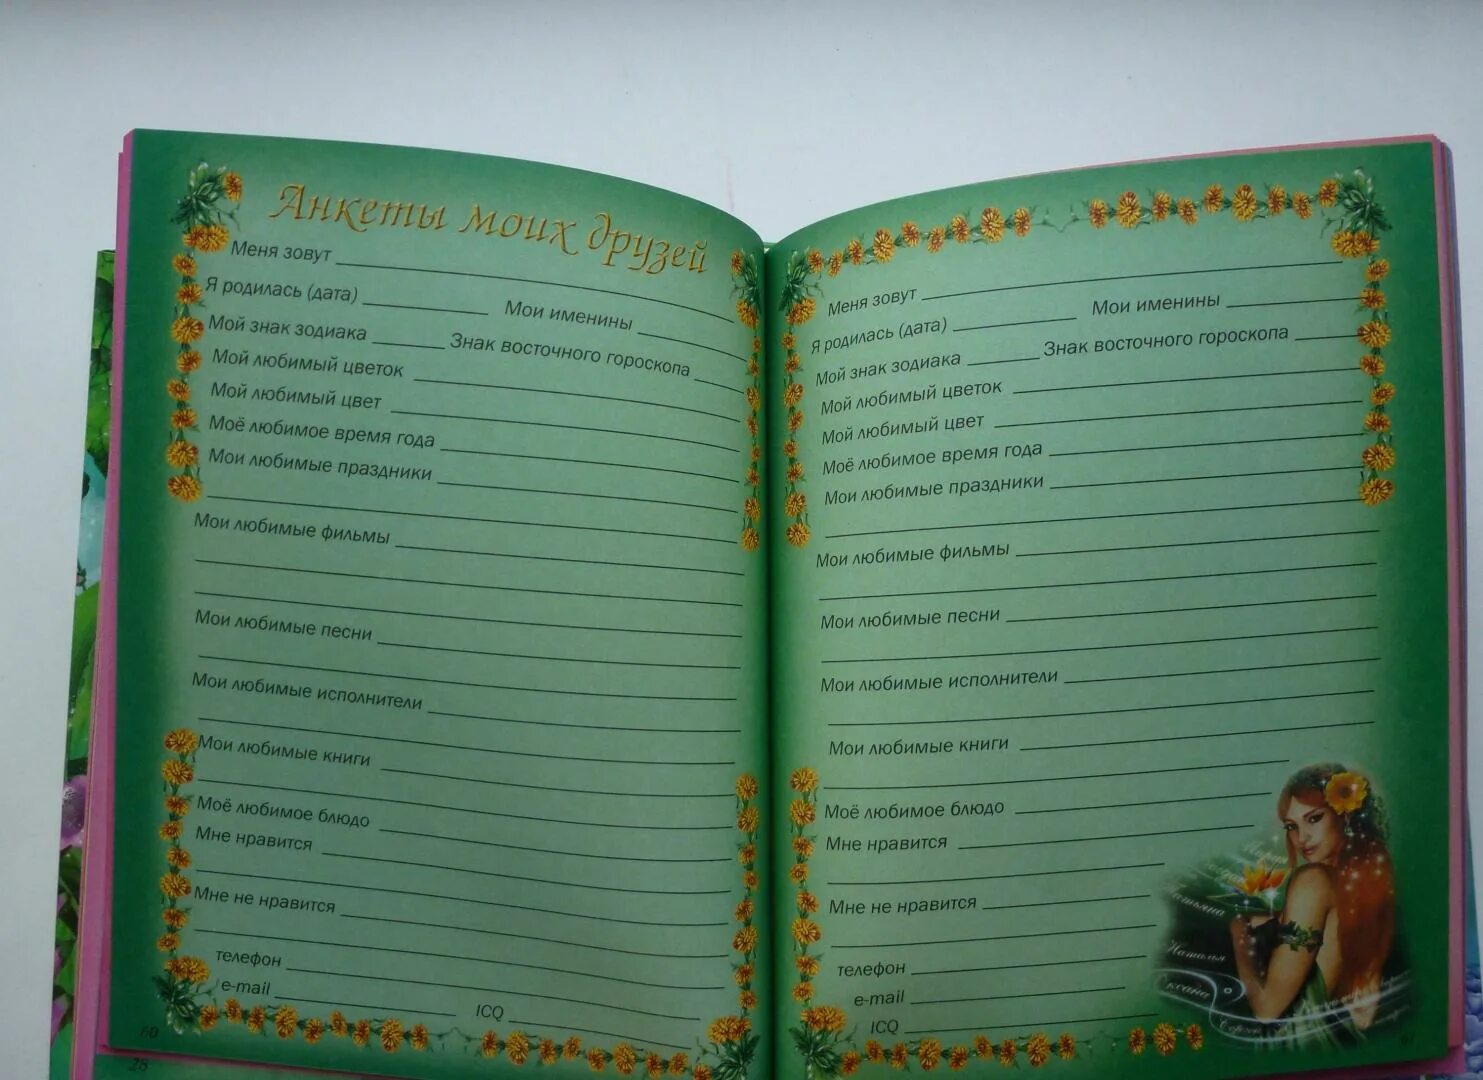 Анкеты моих друзей
Меня зовут
Я родилась (дата) Мои именины
Мой знак зодиака Знак восточного гороскопа
Мой любимый цветок
Мой любимый цвет
Моё любимое время года
Мои любимые праздники
Мои любимые фильмы
Мои любимые песни
Мои любимые исполнители
Мои любимые книги
Моё любимое блюдо
Мне нравится
Мне не нравится
телефон
e-mail ICQ
60
28
Меня зовут
Я родилась (дата) Мои именины
Мой знак зодиака Знак восточного гороскопа
Мой любимый цветок
Мой любимый цвет
Моё любимое время года
Мои любимые праздники
Мои любимые фильмы
Мои любимые песни
Мои любимые исполнители
Мои любимые книги
Моё любимое блюдо
Мне нравится
Мне не нравится
телефон
e-mail
ICQ
Татьяна
Наталья
Оксана
61